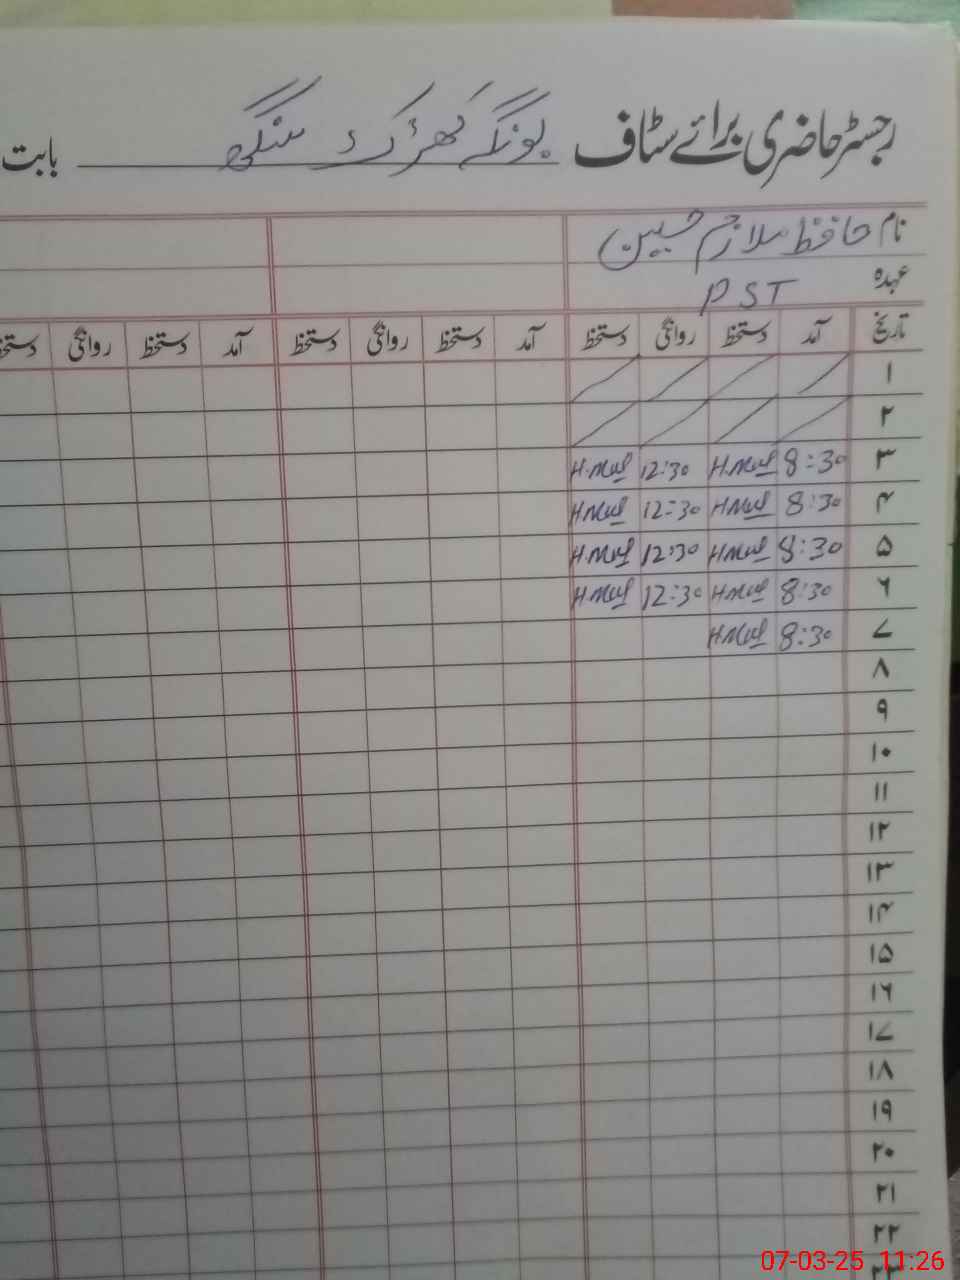 رجسٹر حاضری برائے سٹاف بونگہ کھڑک سنگھ بابت
نام حافظ ملازم حسین
عہدہ PST
تاریخ آمد دستخط روانگی دستخط آمد دستخط روانگی دستخط آمد دستخط روانگی دستخط
۱
۲
۳ 8:30 H.Mul 12:30 H.Mul
۴ 8:30 H.Mul 12:30 H.Mul
۵ 8:30 H.Mul 12:30 H.Mul
۶ 8:30 H.Mul 12:30 H.Mul
۷ 8:30 H.Mul
۸
۹
۱۰
۱۱
۱۲
۱۳
۱۴
۱۵
۱۶
۱۷
۱۸
۱۹
۲۰
۲۱
۲۲
۲۳
07-03-25 11:26